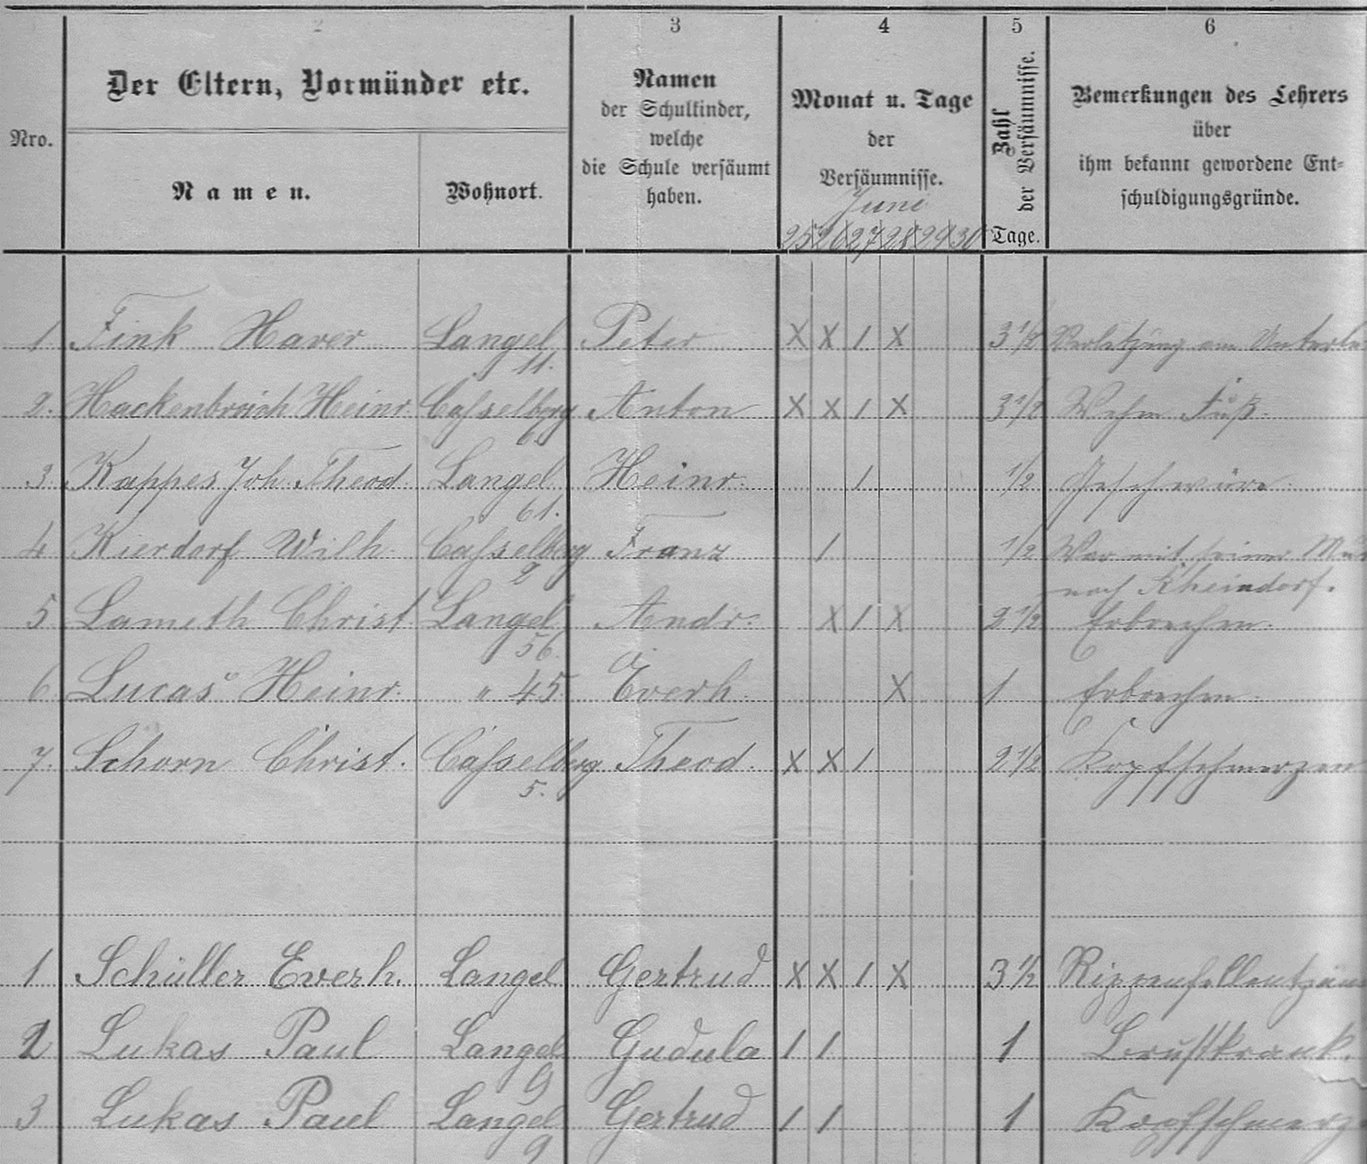 2 3 4 5 6
Nro.
Der Eltern, Vormünder etc.
Namen.
Wohnort.
Namen
der Schulkinder,
welche
die Schule versäumt
haben.
Monat u. Tage
der
Versäumnisse.
Juni
25 26 27 28 29 30
Zahl
der Versäumnisse.
Tage.
Bemerkungen des Lehrers
über
ihm bekannt gewordene Ent-
schuldigungsgründe.
1 Fink Xaver Langel Peter X X / X 3 1/2 Verletzung am Unterle
11.
2. Hackenbroich Heinr. Casselberg Anton X X / X 3 1/2 Wehm Fuß.
6.
3 Kappes Joh. Theod. Langel Heinr. / 1/2 Geschwüre.
61.
4 Kierdorf Wilh. Casselberg Franz / 1/2 War mit seiner Mu
2 nach Rheindorf.
5 Lameth Christ. Langel Andr. X / X 2 1/2 Erbrechen.
56.
6 Lucas Heinr. " 45. Everh. X 1 Erbrechen.
7. Schorn Christ. Casselberg Theod. X X / 2 1/2 Kopfschmerzen
5.
1 Schüller Everh. Langel Gertrud X X / X 3 1/2 Rippenfellentzün
2 Lukas Paul Langel Gudula / / 1 Brustkrank.
9
3 Lukas Paul Langel Gertrud / / 1 Kopfschmerz
9